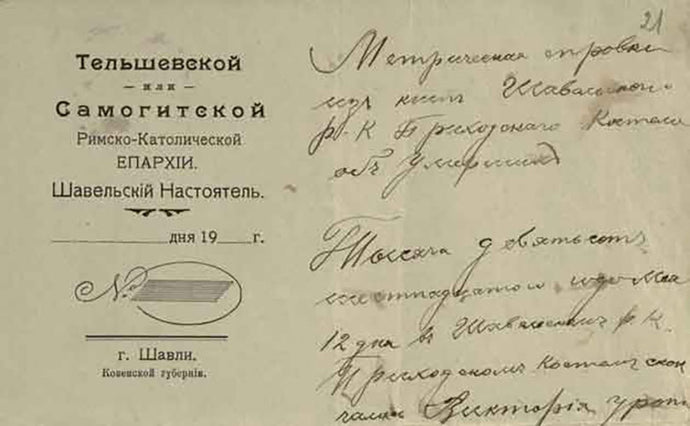 Тельшевской
— или —
Самогитской
Римско-Католической
ЕПАРХІИ.
Шавельскій Настоятель.
дня 19 г.
№
г. Шавли.
Ковенской губерніи.
21
Метрическая
изъ книг Шавельскаго
Р.-К Приходскаго Костела
объ
Тысяча девятьсотъ
шестнадцатого года Мая
12 дня въ Шавельскомъ Р. К.
Приходскомъ Костелѣ скон
чалась Викторія урож